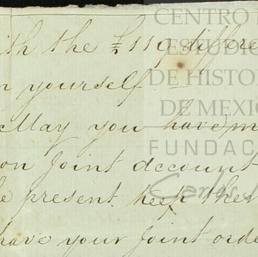 ith the £119 differe
n yourself —
May you have m
on Joint account
e present, keep the
have your Joint orde
CENTRO
ESTUDIO
DE HISTOR
DE MEXIC
FUNDAC
Carlos S